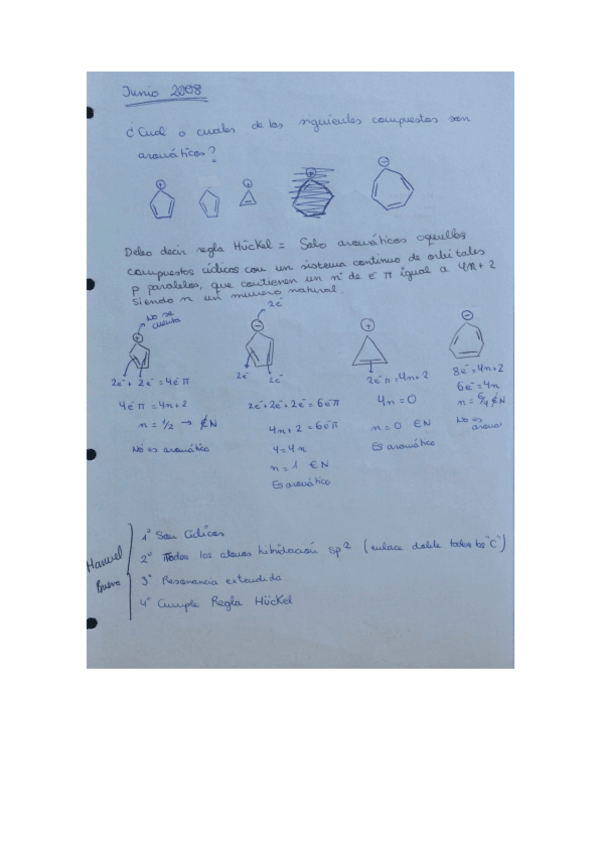 Junio 2008
¿Cual o cuales de los siguientes compuestos son
aromáticos?
⊕ ⊕ ⊕ ⊖
Debo decir regla Hückel = Solo aromáticos aquellos
compuestos cíclicos con un sistema continuo de orbitales
p paralelos, que contienen un nº de e⁻ π igual a 4n+2
siendo n un numero natural.
No se
cuenta
2e⁻
⊕ ⊖ ⊕ ⊖
2e⁻ + 2e⁻ = 4e⁻π
4e⁻π = 4n+2
n = 1/2 → ∉N
No es aromático
2e⁻ 2e⁻
2e⁻+2e⁻+2e⁻ = 6e⁻π
4n+2 = 6e⁻π
4 = 4n
n = 1 ∈N
Es aromático
2e⁻π = 4n+2
4n = 0
n = 0 ∈N
Es aromático
8e⁻ = 4n+2
6e⁻ = 4n
n = 6/4 ∉N
No es
aroma
Manuel
Bueno
1º Son Cíclicos
2º Todos los atomos hibridación sp² (enlace doble todos los "C")
3º Resonancia extendida
4º Cumple Regla Hückel